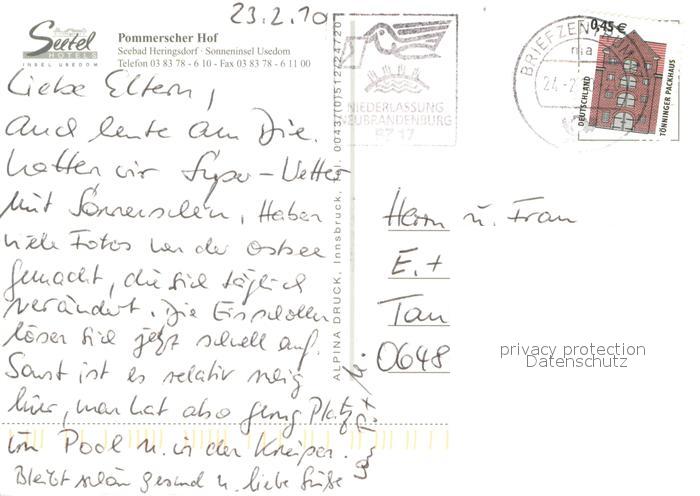 23.2.10
Seetel
HOTELS
INSEL USEDOM
Pommerscher Hof
Seebad Heringsdorf · Sonneninsel Usedom
Telefon 03 83 78 - 6 10 - Fax 03 83 78 - 6 11 00
Liebe Eltern,
auch heute am Die.
hatten wir Super-Wetter
mit Sonnenschein, Haben
viele Fotos von der Ostsee
gemacht, die sich täglich
verändert. Die Eisschollen
lösen sich jetzt schnell auf.
Sonst ist es relativ ruhig
hier, man hat also genug Platz
im Pool u. in der Kneipe.
Bleibt schön gesund u. liebe Grüße
ALPINA DRUCK, Innsbruck, Tel. 00437(0)512/24720
NIEDERLASSUNG
NEUBRANDENBURG
BZ 17
BRIEFZEN
24.-2
0,45 €
DEUTSCHLAND
TÖNNINGER PACKHAUS
Herrn u. Frau
E. +
Tau
0648
privacy protection
Datenschutz